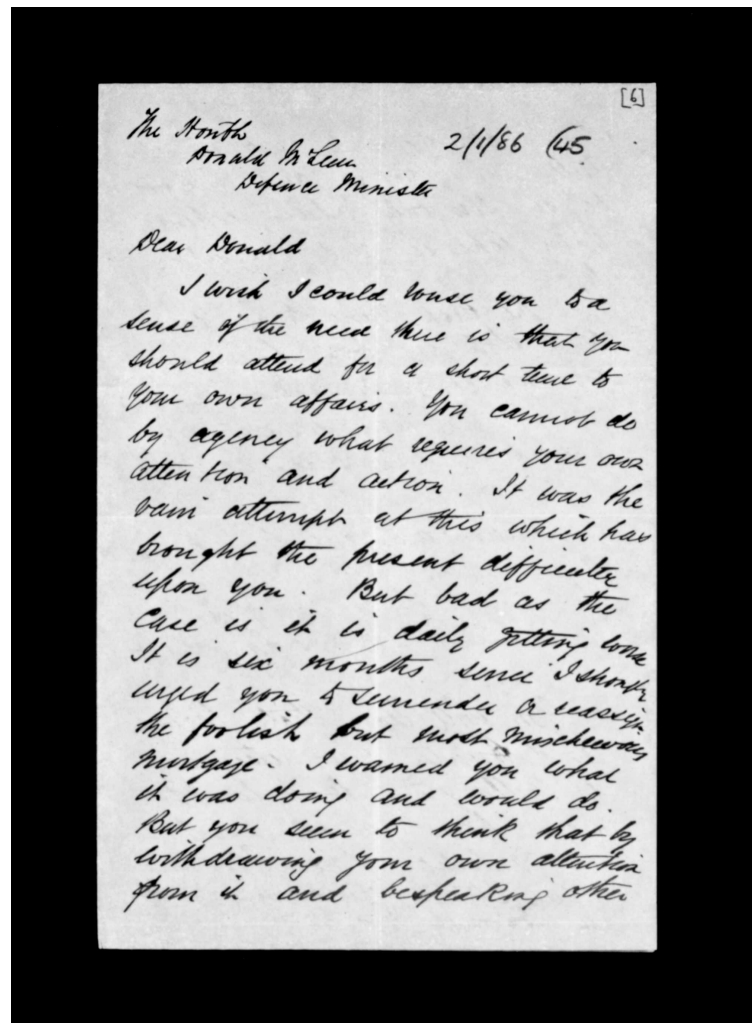 [6]
The Honble
2/1/86 (45
Donald McLean
Defence Minister
Dear Donald
I wish I could rouse you to a
sense of the need there is that you
should attend for a short time to
your own affairs. You cannot do
by agency what requires your own
attention and action. It was the
vain attempt at this which has
brought the present difficulty
upon you. But bad as the
case is it is daily getting worse
It is six months since I strongly
urged you to surrender or reassign
the foolish but most mischievous
mortgage. I warned you what
it was doing and would do.
But you seem to think that by
withdrawing your own attention
from it and bespeaking other